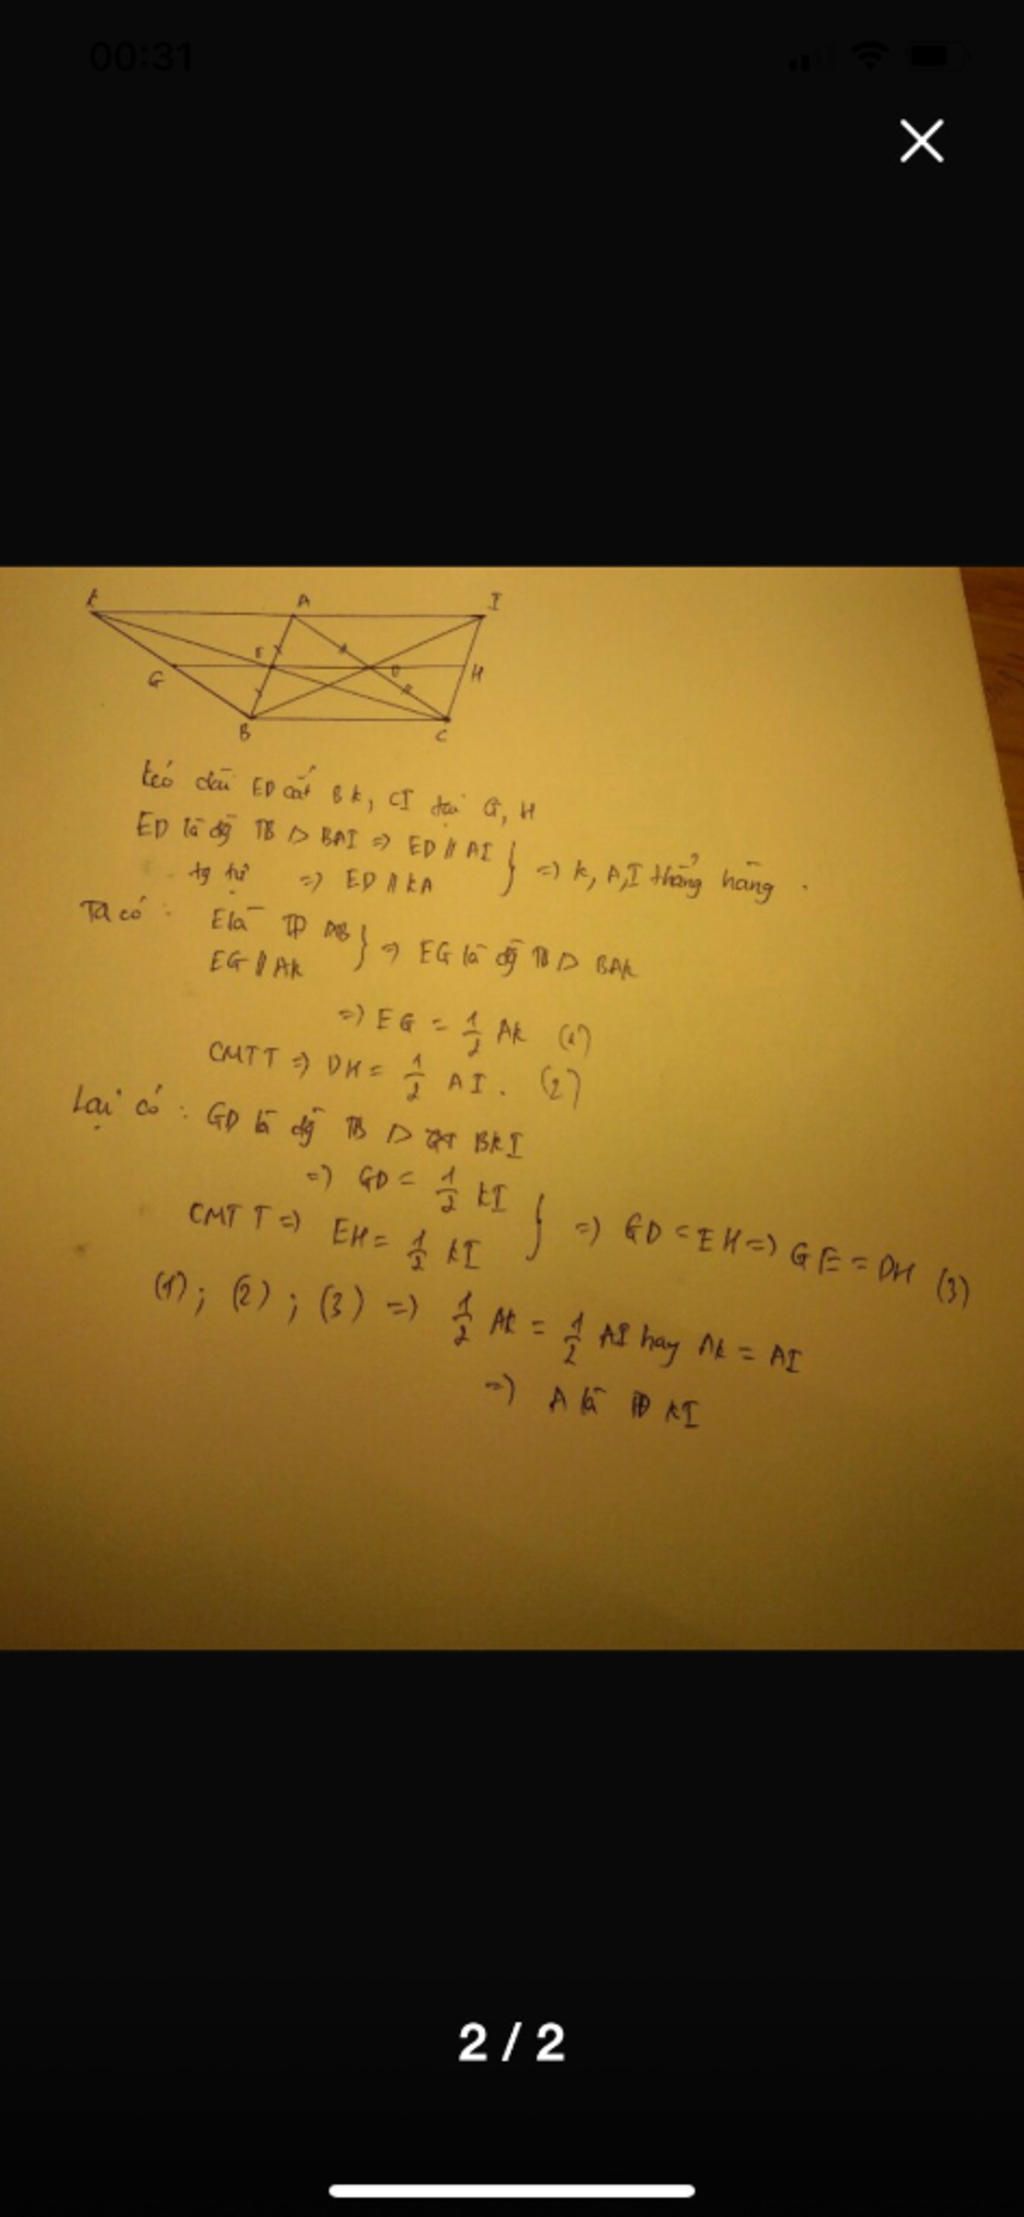 00:31
K A I
E D
G H
B C
kéo dài ED cắt BK, CI tại G, H
ED là đg̃ TB ▷ BAI => ED // AI
tg tự => ED // KA } => K, A, I thẳng hàng.
Ta có: E là TĐ AB
EG // AK } => EG là đg̃ TB ▷ BAK
=> EG = 1/2 AK (1)
CMTT => DH = 1/2 AI. (2)
Lại có: GD là đg̃ TB ▷ BKI
=> GD = 1/2 KI
CMTT => EH = 1/2 KI } => GD = EH => GE = DH (3)
(1); (2); (3) => 1/2 AK = 1/2 AI hay AK = AI
=> A là TĐ KI
2 / 2